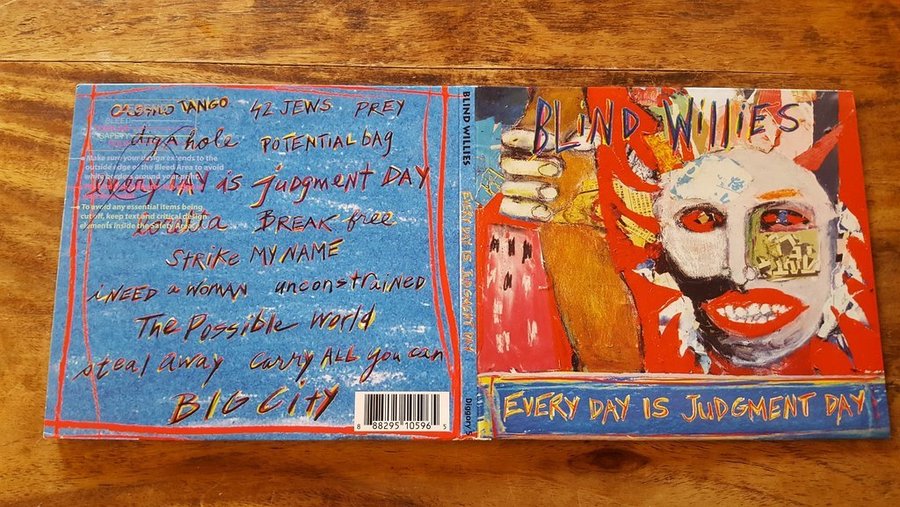 TANGO 42 JEWS PREY
dig A hole POTENTIAL bAg
• Make sure your design extends to the
outside edge of the Bleed Area to avoid
white borders around your
DAY is judgment DAY
• To avoid any essential items being
cut off, keep text and critical design
elements inside the Safety Area
BREAK free
STRIKE MY NAME
i NEED a WOMAN unconstrained
The Possible World
steal away CARRY ALL you can
BIG CITY
8 88295 10596 5
BLIND WILLIES
EVERY DAY IS JUDGMENT DAY
Diggory's
BLIND WILLIES
EVERY DAY IS JUDGMENT DAY